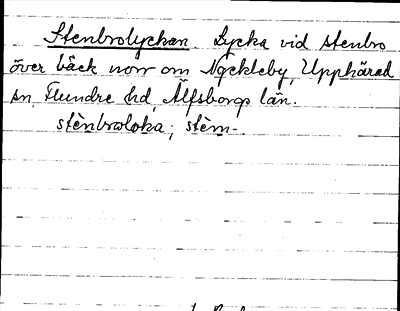 Stenbrolyckan Lycka vid stenbro
över bäck norr om Nyckleby, Upphärad
sn, Flundre hd, Älfsborgs län.
stènbroloka; stèm-